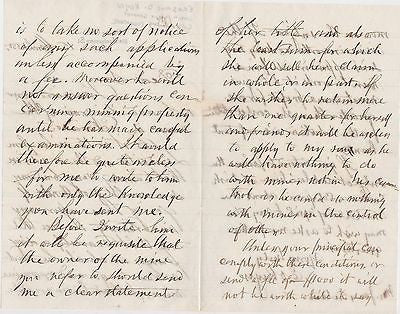 is to take no sort of notice
of any such applications
unless accompanied by
a fee. Moreover he will
not answer questions con
cerning mining property
until he has made careful
examinations. It would
therefore be quite useless
for me to write to him
with only the knowledge
you have sent me.
Before I write him
it will be requisite that
the owner of the mine
you refer to should send
me a clear statement
of her title and also
the least sum for which
she will sell her claim
in whole or in part. If
she wishes to retain more
than one quarter for herself
and friends it will be useless
to apply to my son as he
will have nothing to do
with mines not in his con
trol as he could do nothing
with mines in the control
of others.
Unless your principal can
comply with these conditions or
send a fee of it will
not be worth while to say